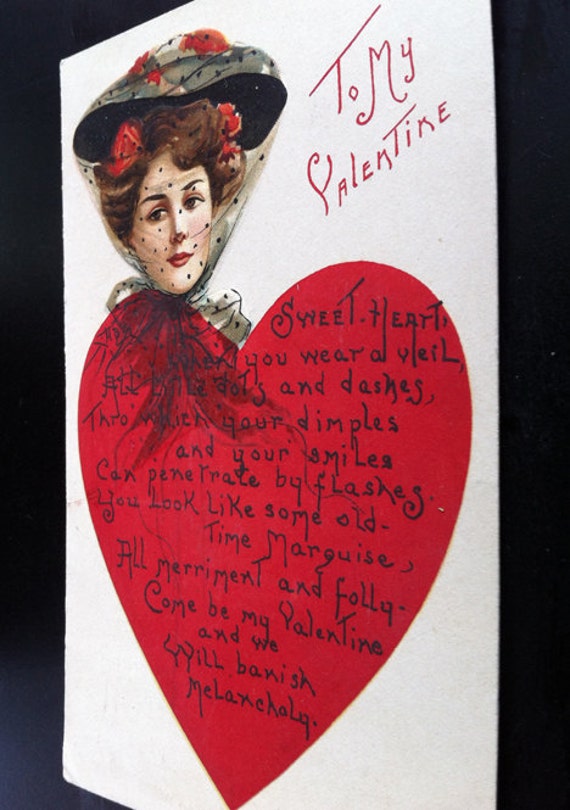 To My
Valentine
Sweet-Heart,
when you wear a veil,
All little dots and dashes,
Thro which your dimples
and your smiles
Can penetrate by flashes.
You look like some old-
Time Marquise,
All merriment and folly-
Come be my Valentine
and we
Will banish
Melancholy.